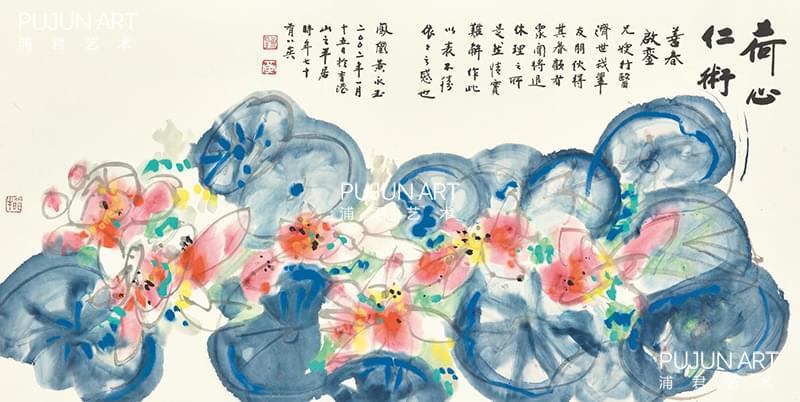 PUJUN ART
浦君艺术
荷心
仁術
善春
啟鑾
兄嫂行醫
濟世我輩
友朋伙得
其眷顧者
眾聞將退
休理之所
是然情實
難解作此
以表不勝
依々之感也
鳳凰黃永玉
二〇〇二年一月
十五日於香港
山之半居
時年七十
有八矣
PUJUN ART
浦君艺术
PUJUN ART
浦君艺术